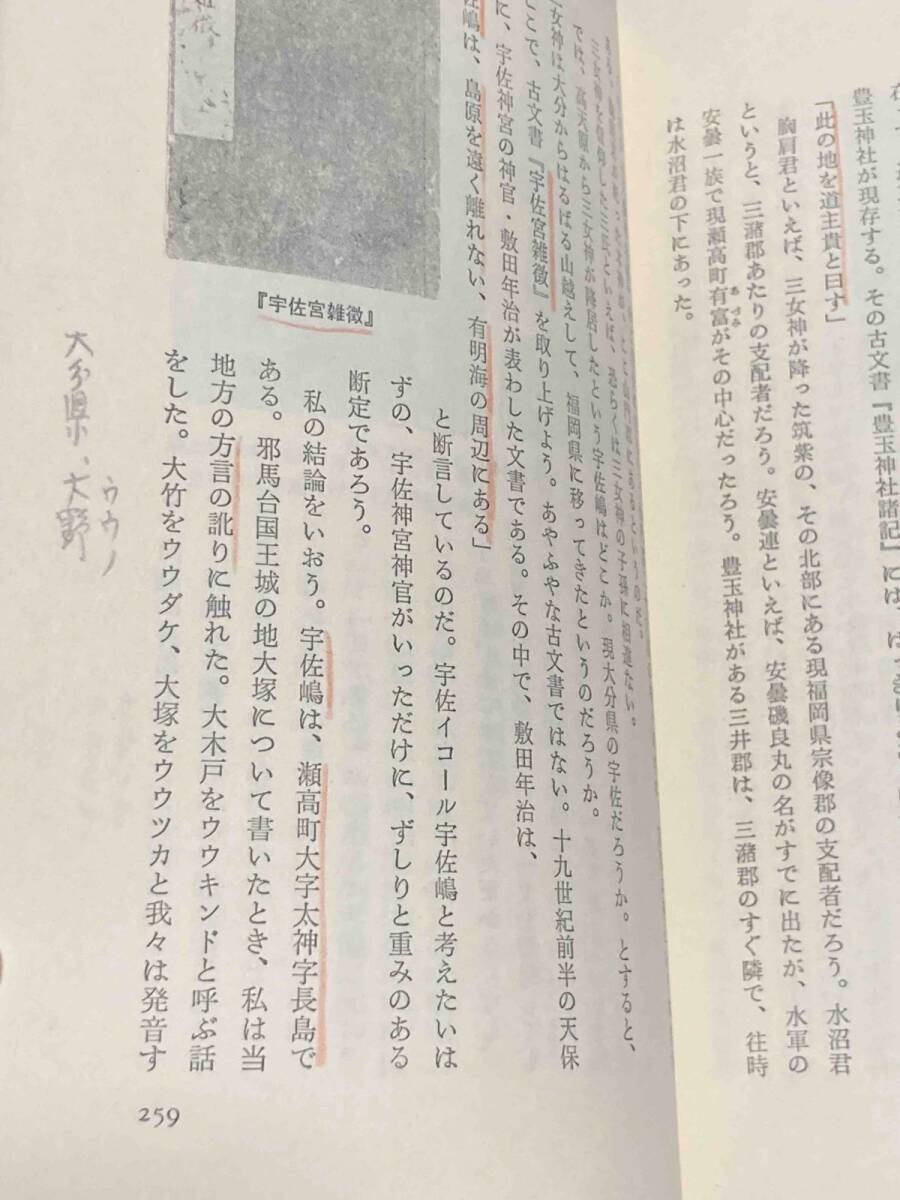 豊玉神社が現存する。その古文書『豊玉神社諸記』には、はっきり
「此の地を道主貴と曰す」
胸肩君といえば、三女神が降った筑紫の、その北部にある現福岡県宗像郡の支配者だろう。水沼君
というと、三潴郡あたりの支配者だろう。安曇連といえば、安曇磯良丸の名がすでに出たが、水軍の
安曇一族で現瀬高町有富がその中心だったろう。豊玉神社がある三井郡は、三潴郡のすぐ隣で、往時
あづみ
は水沼君の下にあった。
にあるというのだ。
三女神を信仰した三氏といえば、恐らくは三女神の子孫に相違ない。
では、高天原から三女神が降居したという宇佐嶋はどこか。現大分県の宇佐だろうか。とすると、
女神は大分からはるばる山越えして、福岡県に移ってきたというのだろうか。
ここで、古文書『宇佐宮雑徴』を取り上げよう。あやふやな古文書ではない。十九世紀前半の天保
に、宇佐神宮の神官・敷田年治が表わした文書である。その中で、敷田年治は、
佐嶋は、島原を遠く離れない、有明海の周辺にある」
と断言しているのだ。宇佐イコール宇佐嶋と考えたいは
ずの、宇佐神宮神官がいっただけに、ずしりと重みのある
断定であろう。
私の結論をいおう。宇佐嶋は、瀬高町大字太神字長島で
ある。邪馬台国王城の地大塚について書いたとき、私は当
地方の方言の訛りに触れた。大木戸をウウキンドと呼ぶ話
をした。大竹をウウダケ、大塚をウウツカと我々は発音す
『宇佐宮雑徴』
大分県、大野
ウウノ
259